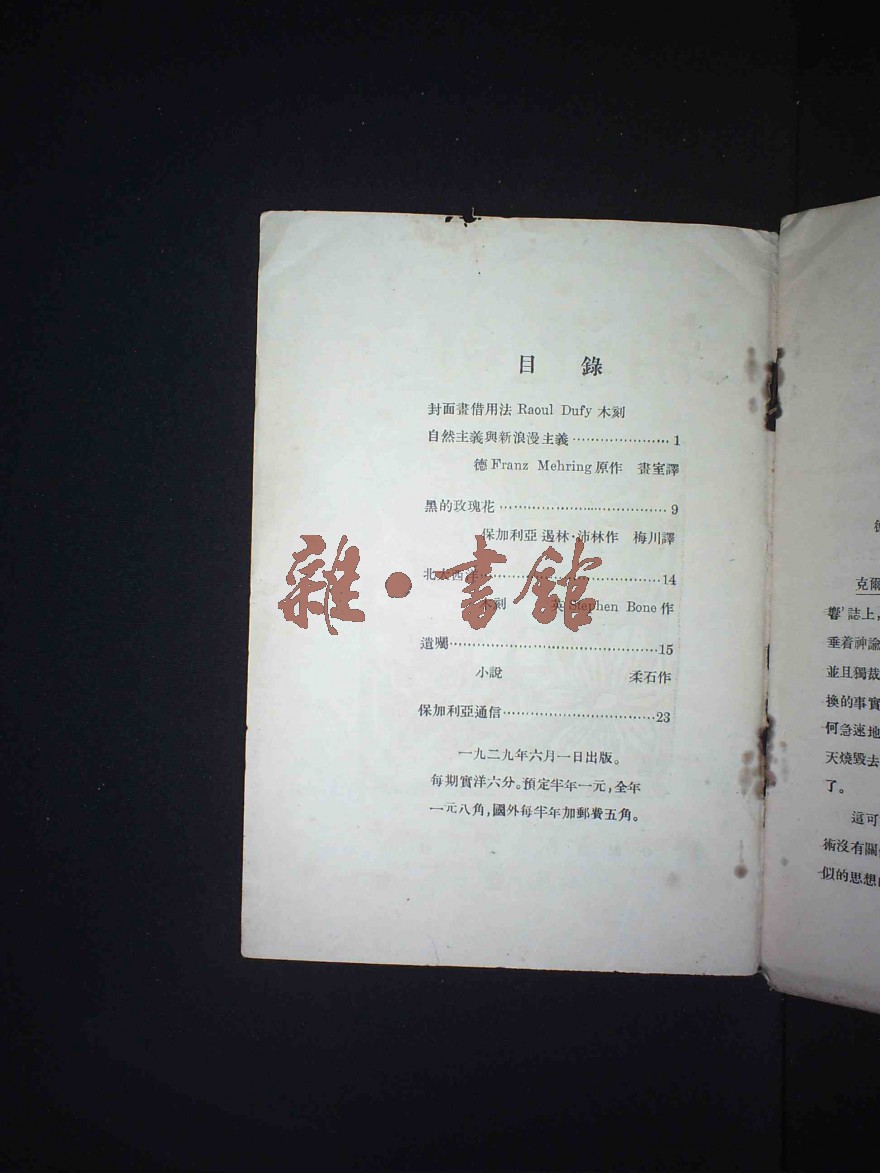 目 錄
封面畫借用法 Raoul Dufy 木刻
自然主義與新浪漫主義……………………1
德 Franz Mehring 原作 畫室譯
黑的玫瑰花………………………………9
保加利亞 遏林·沛林作 梅川譯
北大西洋………………………………14
木刻 英 Stephen Bone 作
遺囑……………………………………15
小說 柔石作
保加利亞通信……………………………23
一九二九年六月一日出版。
每期實洋六分。預定半年一元,全年
一元八角,國外每半年加郵費五角。
雜·書館
克爾
響'誌上,
垂着神諭
並且獨裁
換的事實
何急速地
天燒毀去
了。
這可
術沒有關
似的思想